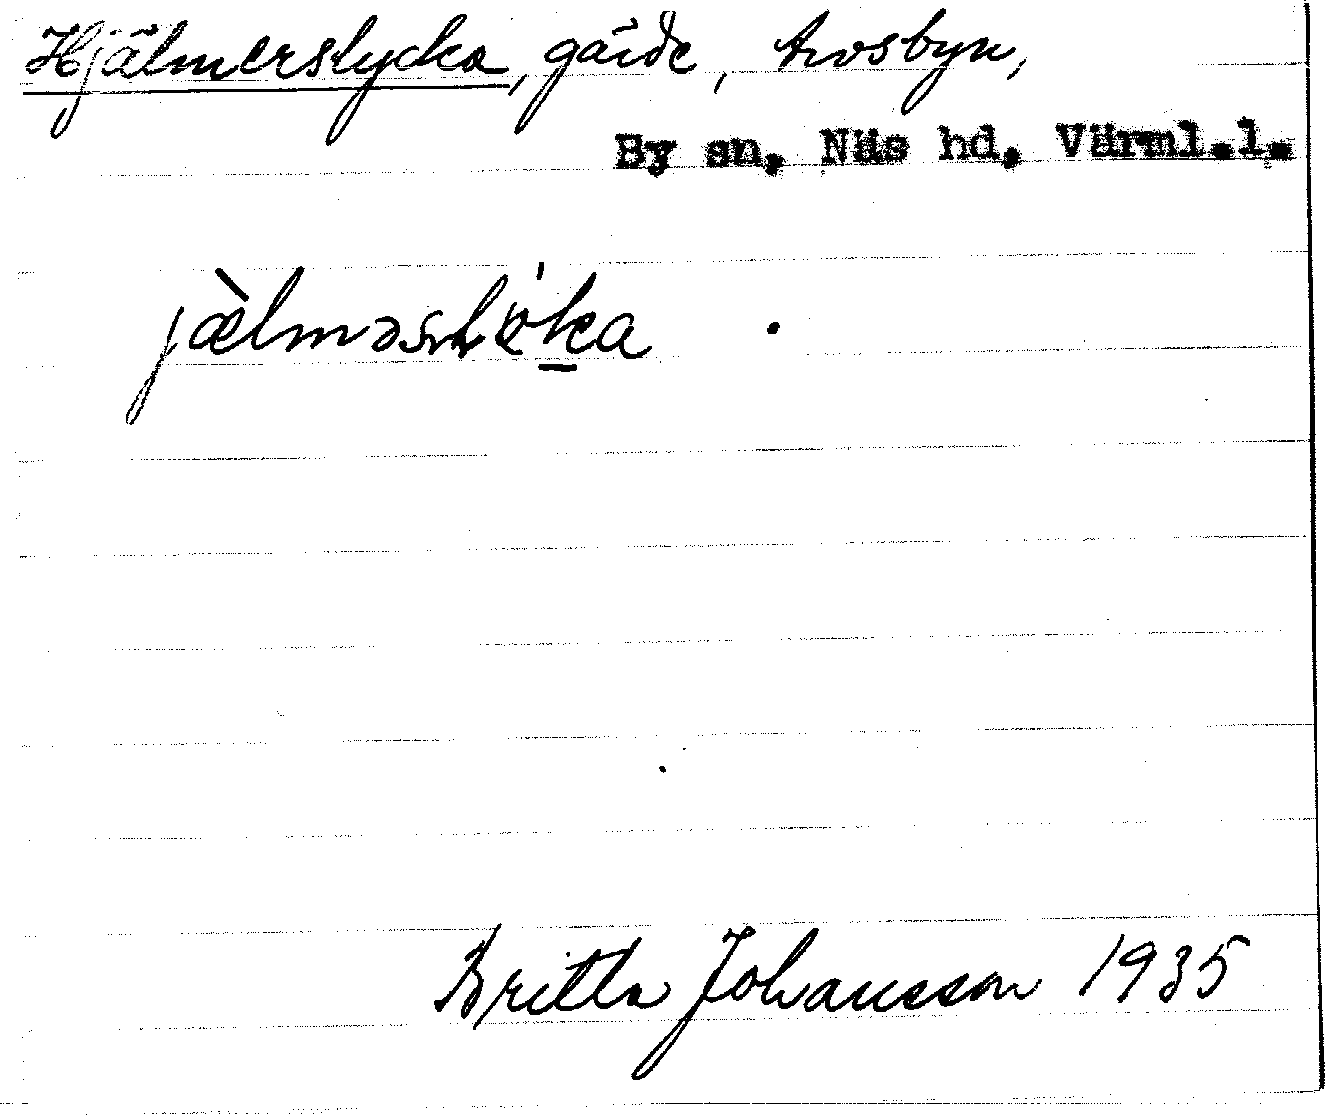 Hjälmerslycka, gärde, Avosbyn,
By sn, Näs hd, Värml.l.
Britta Johansson 1935